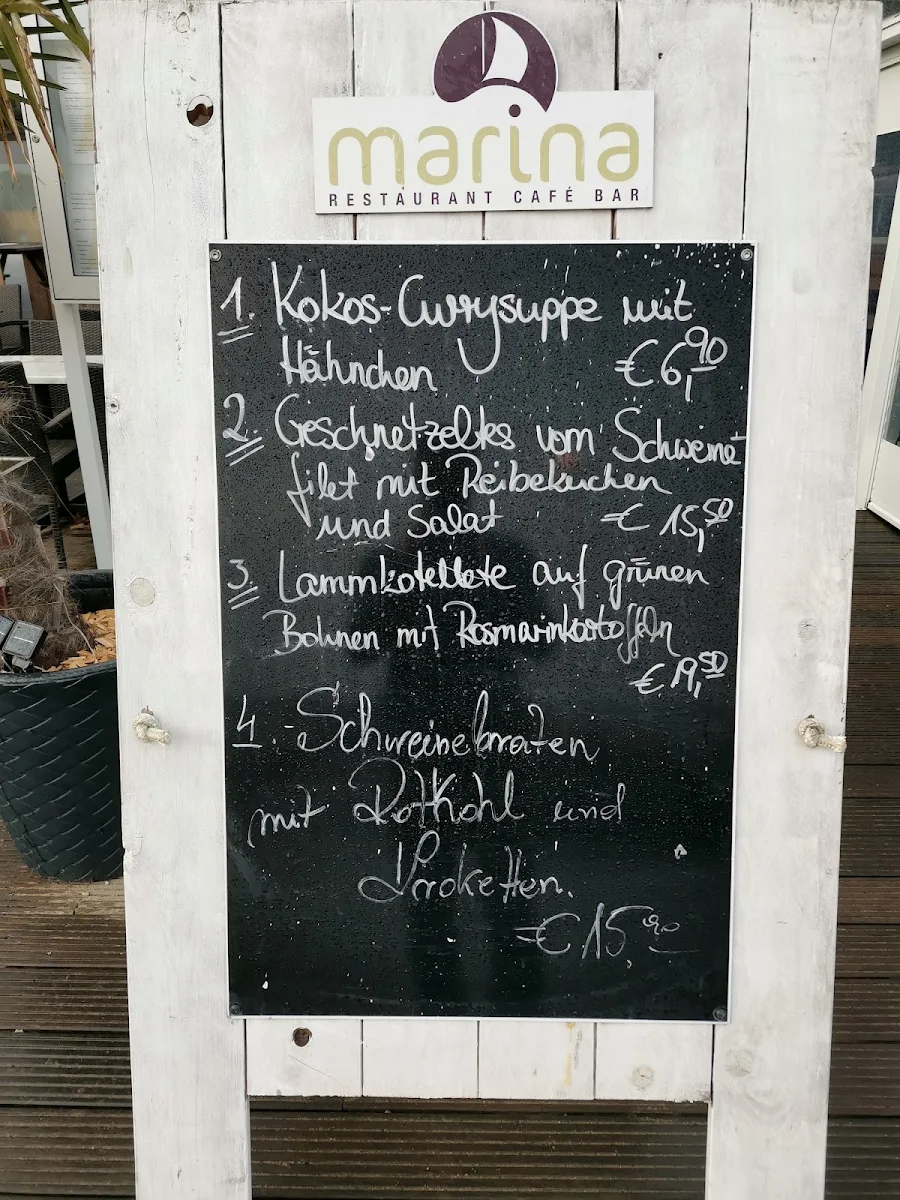 marina
RESTAURANT CAFÉ BAR
1. Kokos-Currysuppe mit
Hähnchen €6,90
2. Geschnetzeltes vom Schweine-
filet mit Reibekuchen
und Salat € 15,50
3. Lammkotelette auf grünen
Bohnen mit Rosmarinkartoffeln
€ 19,50
4. Schweinebraten
mit Rotkohl und
Kroketten.
€ 15,90